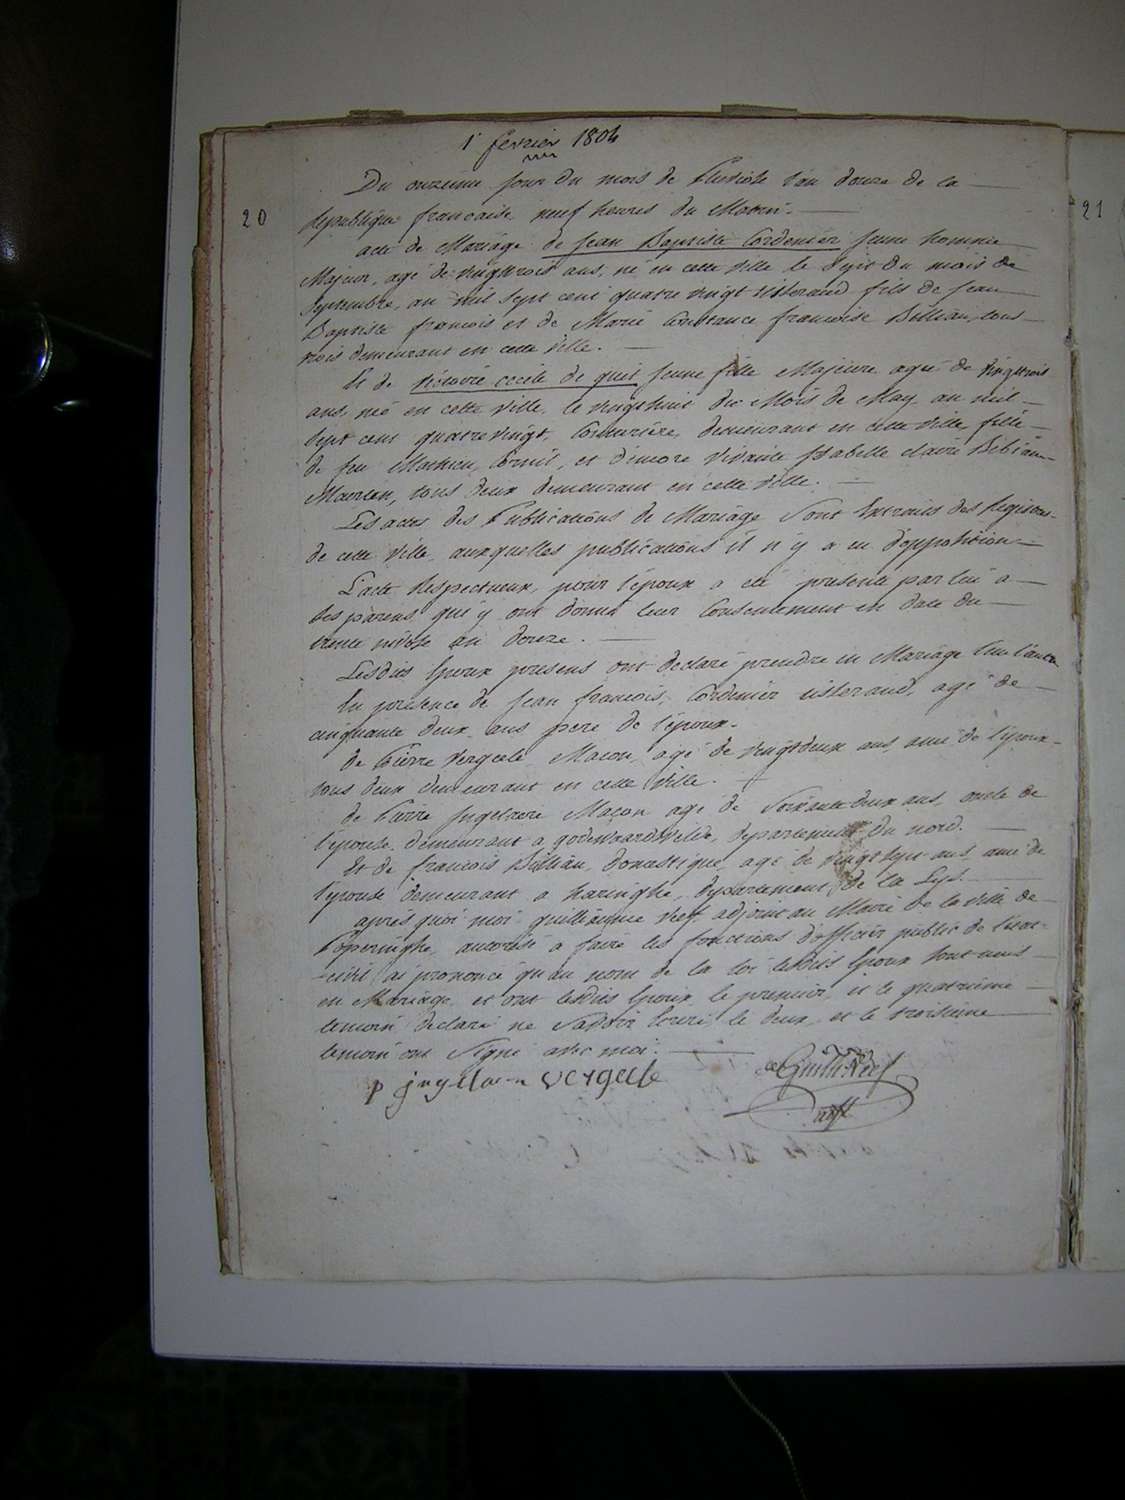 1 fevrier 1804
20
21
Du onzieme jour du mois de Pluviose l'an douze de la
Republique francaise neuf heures du Matin.
acte de Mariage de Jean Baptiste Cordenier Jeune homme
Majeur, agé de vingttrois ans, né en cette ville le Sept du mois de
Septembre, an mil Sept cent quatre vingt tisserand fils de Jean
Baptiste francois et de Marie Constance francoise Bellian, tous
trois demeurant en cette ville.
Et de victoire cecile de quit Jeune fille Majeure agée de vingttrois
ans, née en cette ville, le vingthuit du Mois de May an mil
Sept cent quatrevingt, Couturière, demeurant en cette ville fille
de feu Mathieu, Cornil, et d'encore vivante Isabelle claire Bibiane
tous deux demeurant en cette ville.
Les actes des Publications de Mariage Sont Extraits des Registres
de cette ville auxquelles publications il n'y a eu d'opposition
L'acte Respectueux, pour l'époux a eté presenté par lui a
ses parens qui y ont donné leur Consentement en date du
trente nivose an douze.
Lesdits Epoux presens ont declaré prendre en Mariage l'un l'autre
En presence de Jean francois, Cordenier tisserand, agé de
cinquante deux ans pere de l'époux.
de Pierre Vergeele Macon, agé de vingtdeux ans ami de l'epoux
tous deux demeurant en cette Ville.
de Pierre Ingelaere Maçon agé de Soixante deux ans, oncle de
l'epouse, demeurant a godewaersvelde, departement du nord.
Et de francois Bellian, domestique agé de vingt Sept ans ami de
l'epouse demeurant a haringhe, departement de la Lys.
après quoi moi guillaume Neef adjoint au Maire de la ville de
Poperinghe, autorisé a faire les fonctions d'officier public de l'etat
civil ai prononcé qu'au nom de la loi lesdits Epoux Sont unis
en Mariage, et ont lesdits Epoux le premier, et le quatrieme
temoin declaré ne Savoir Ecrire, le deux, et le troisieme
temoin ont Signé avec moi.
p ingelaere vergeele
Guill. Neef
adjt